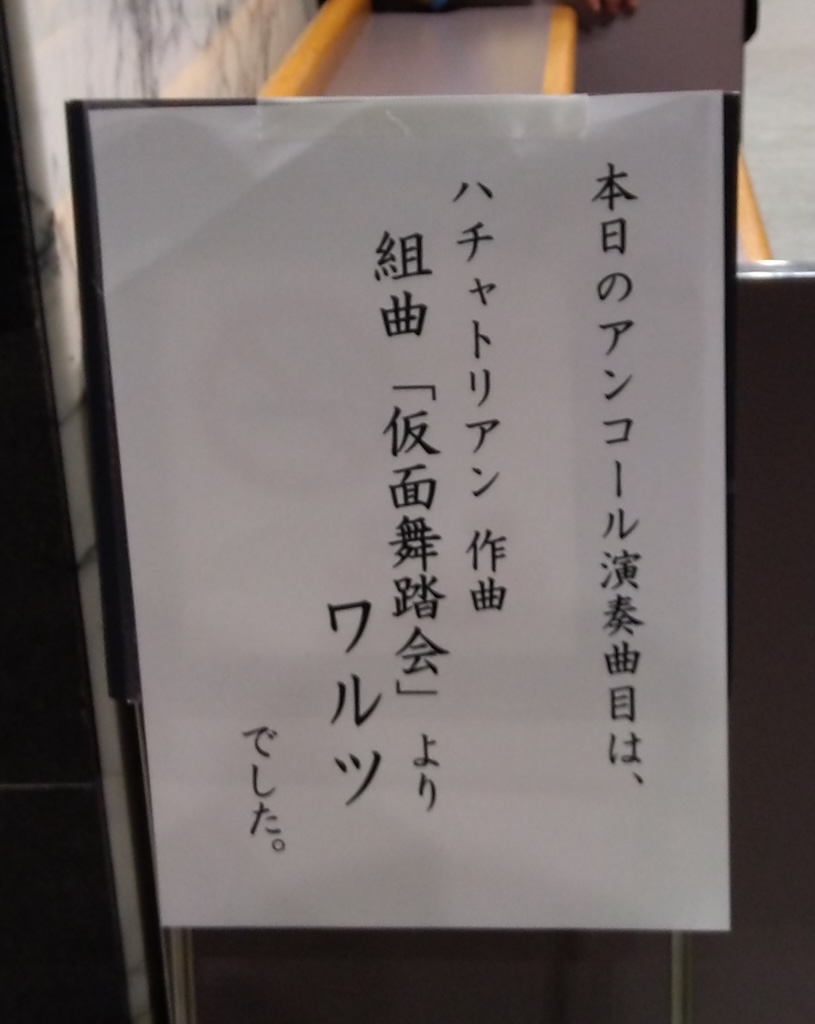 本日のアンコール演奏曲目は、
ハチャトリアン 作曲
組曲「仮面舞踏会」より
ワルツ
でした。